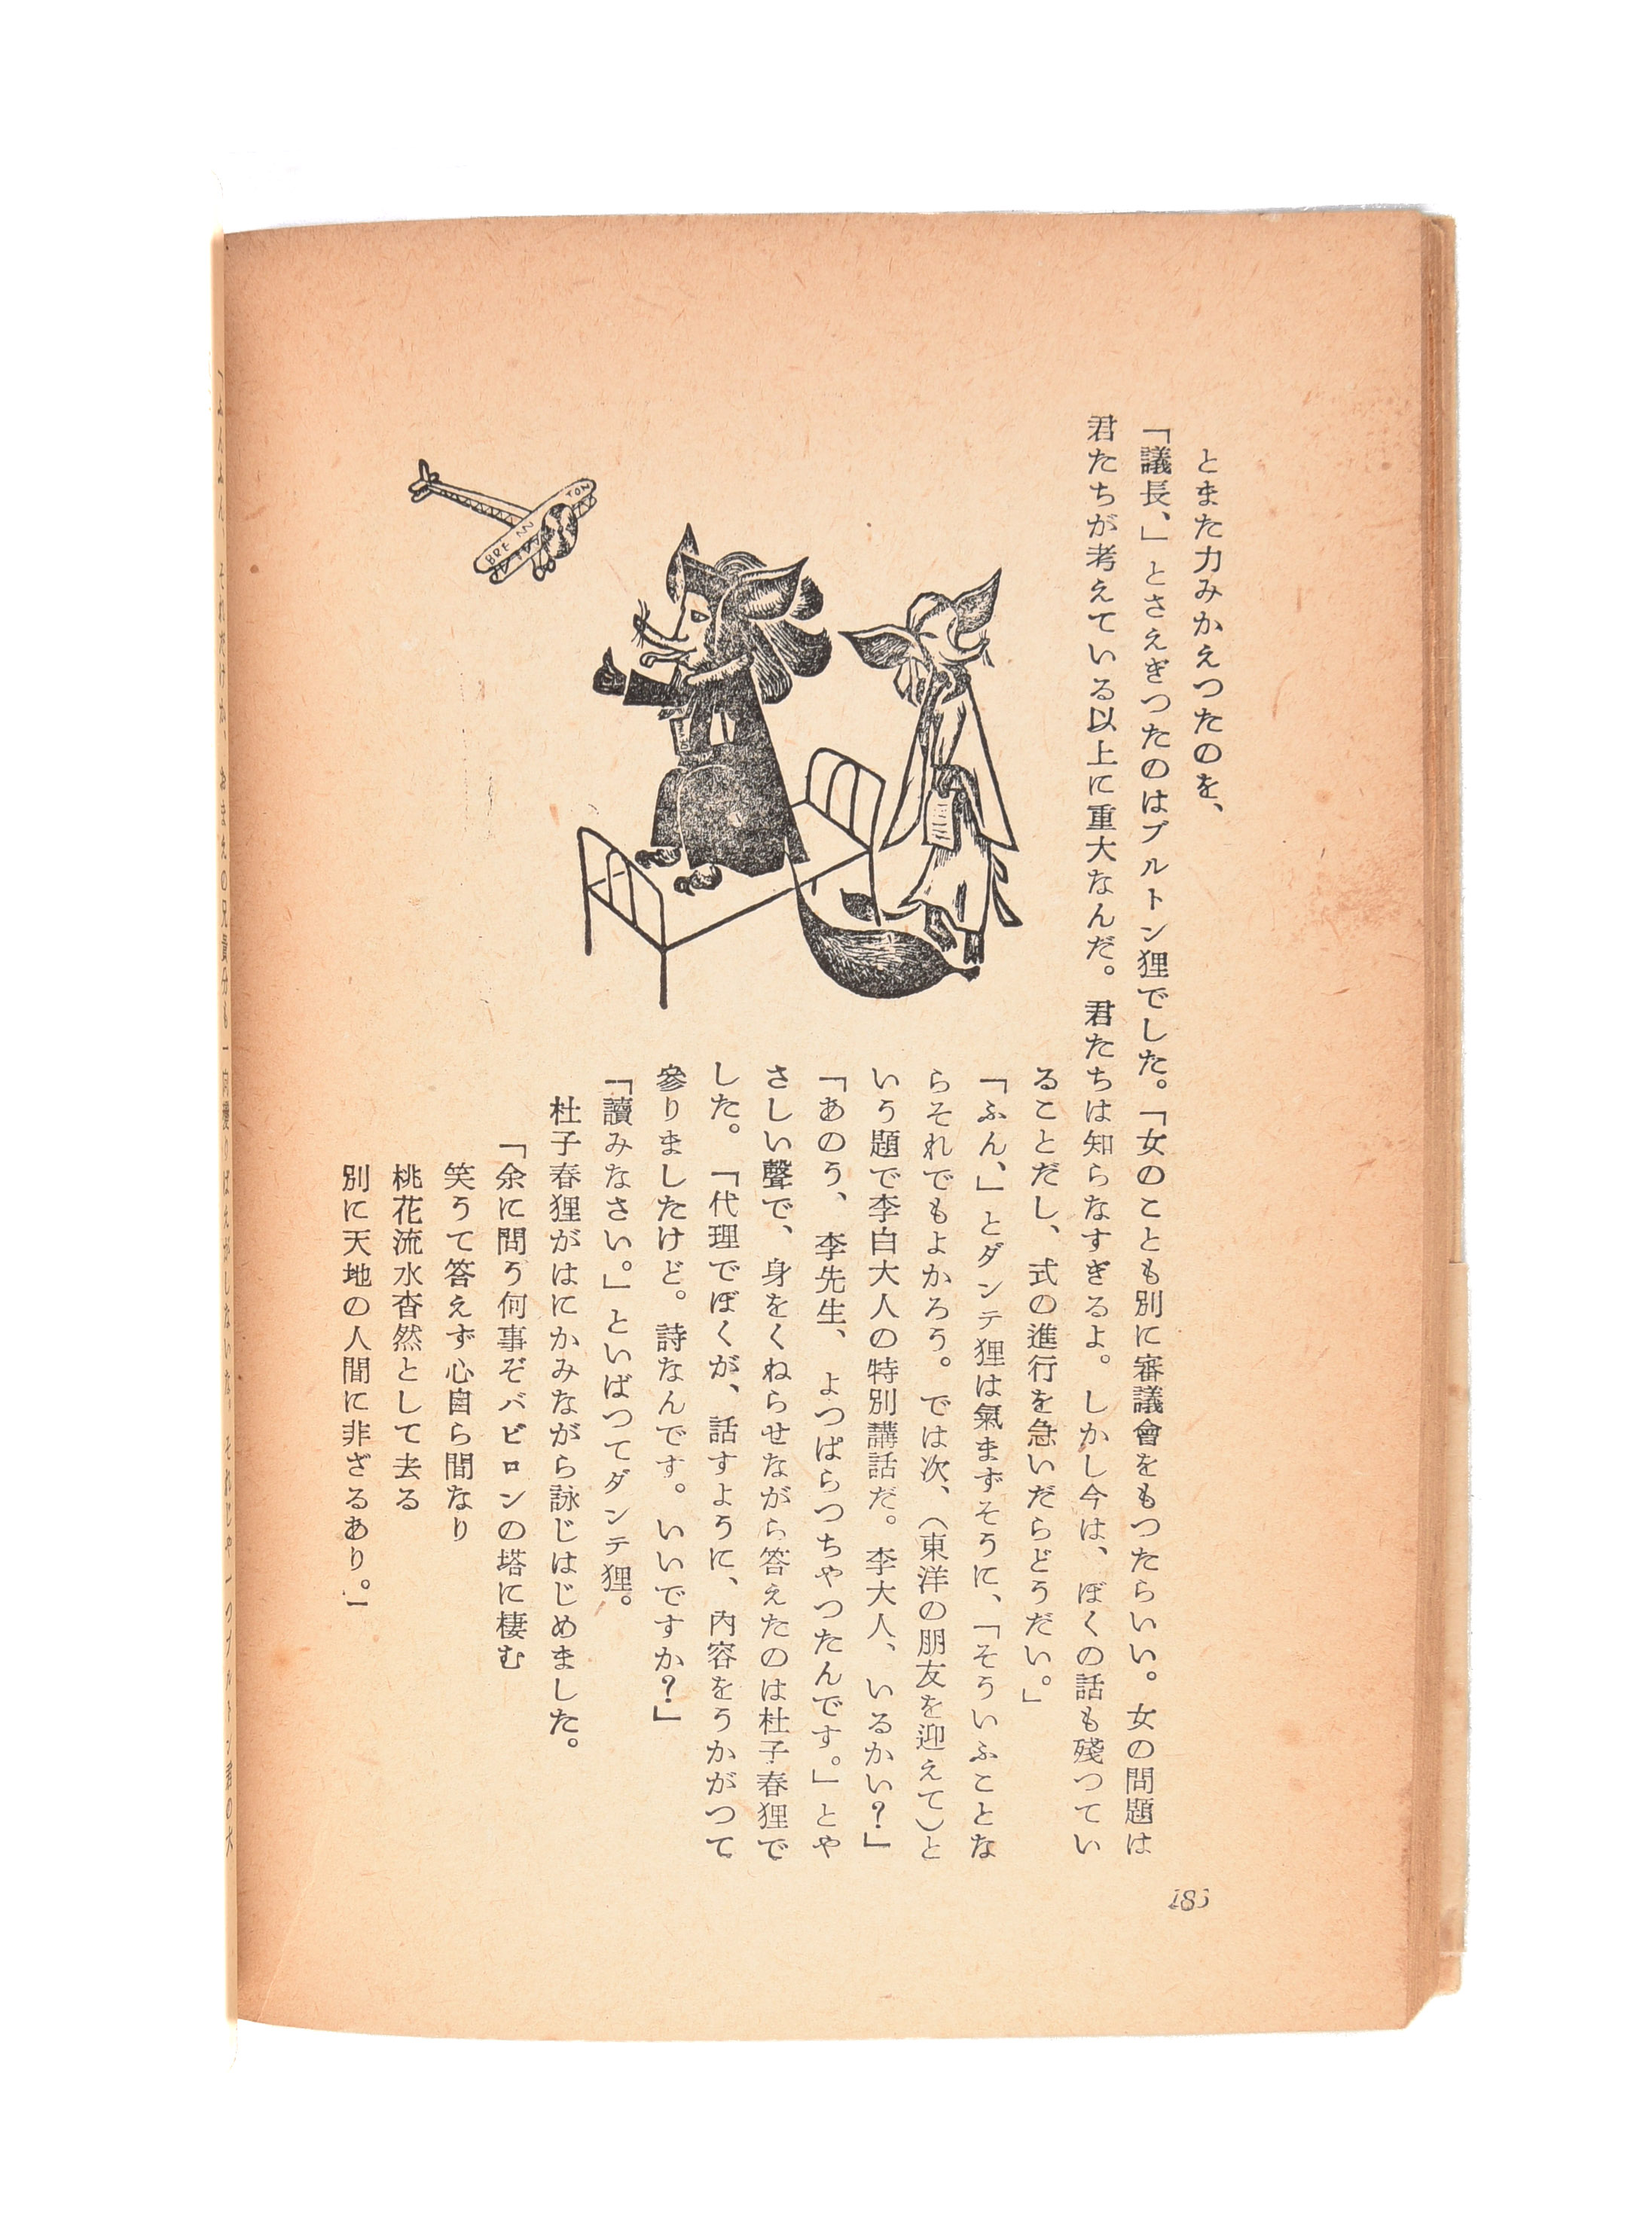 とまた力みかえつたのを、
「議長、」とさえぎつたのはブルトン狸でした。「女のことも別に審議會をもつたらいい。女の問題は
君たちが考えている以上に重大なんだ。君たちは知らなすぎるよ。しかし今は、ぼくの話も殘つてい
ることだし、式の進行を急いだらどうだい。」
「ふん、」とダンテ狸は氣まずそうに、「そういふことな
らそれでもよかろう。では次、（東洋の朋友を迎えて）と
いう題で李白大人の特別講話だ。李大人、いるかい？」
「あのう、李先生、よつぱらつちやつたんです。」とや
さしい聲で、身をくねらせながら答えたのは杜子春狸で
した。「代理でぼくが、話すように、内容をうかがつて
參りましたけど。詩なんです。いいですか？」
「讀みなさい。」といばつてダンテ狸。
杜子春狸がはにかみながら詠じはじめました。
「余に問う何事ぞバビロンの塔に棲む
笑うて答えず心自ら間なり
桃花流水杳然として去る
別に天地の人間に非ざるあり。」
BRE
TON